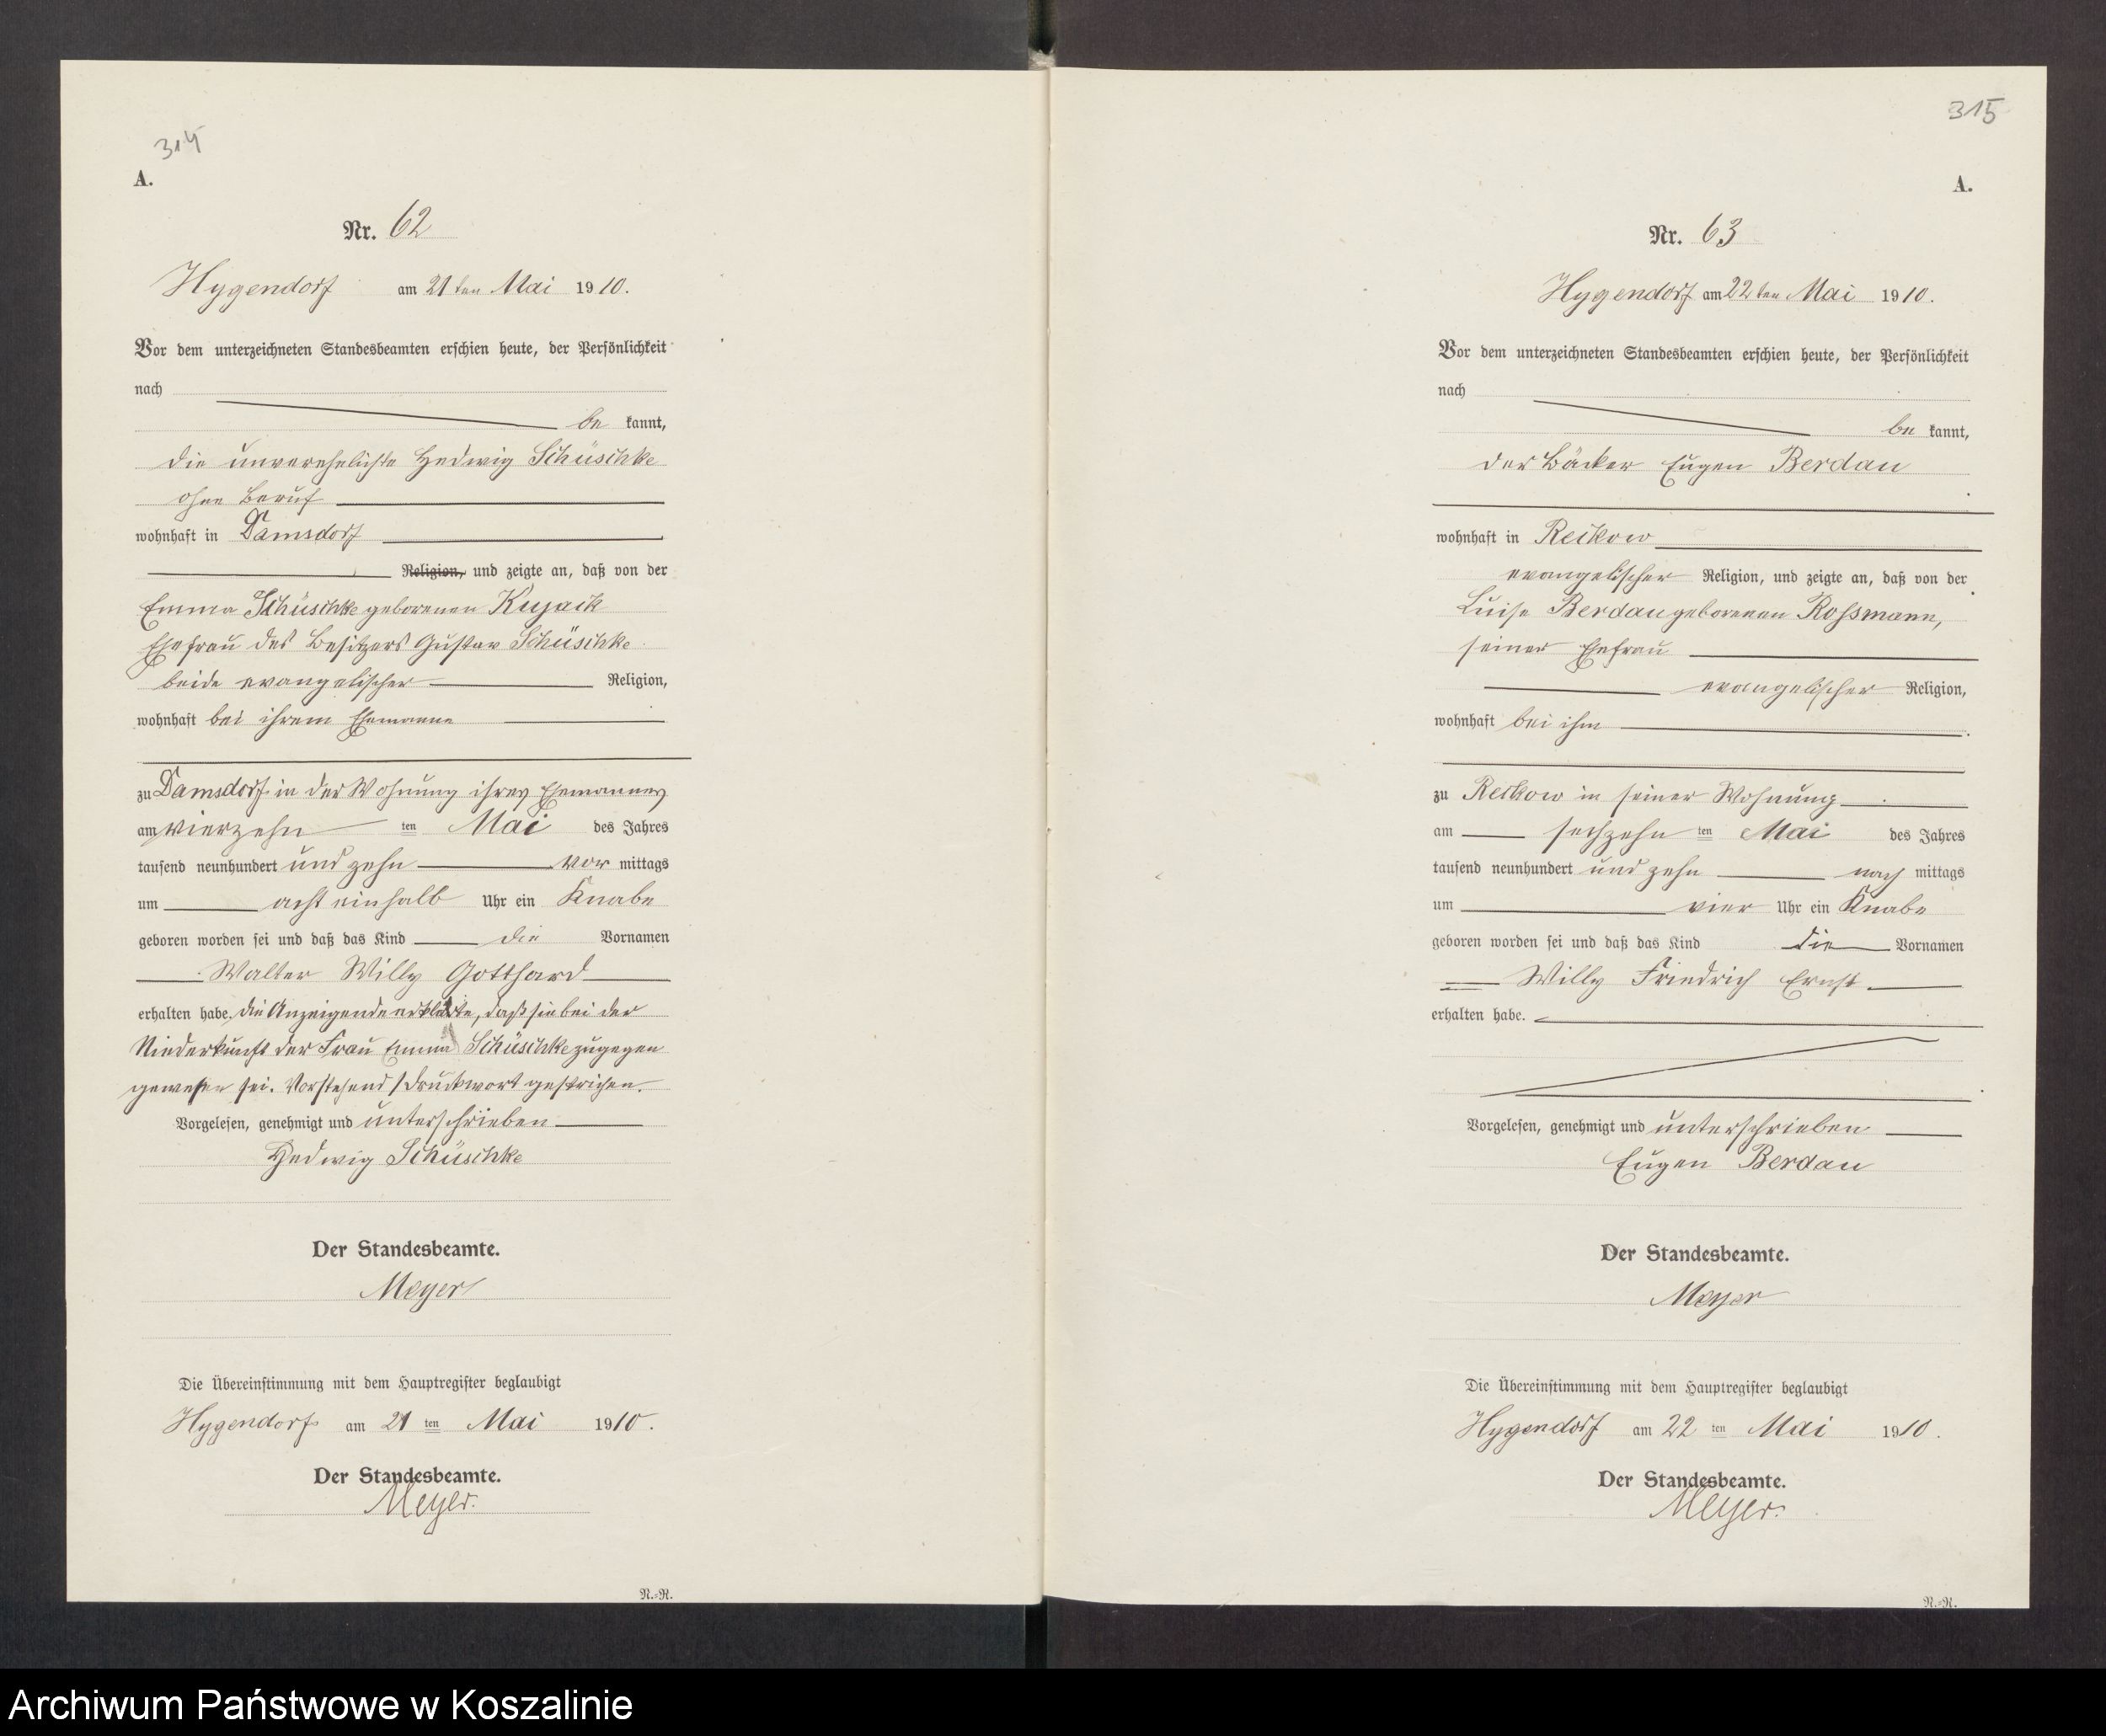 314
A.
Nr. 62
Hygendorf am 21ten Mai 1910.
Vor dem unterzeichneten Standesbeamten erschien heute, der Persönlichkeit
nach
be kannt,
die unverehelichte Hedwig Schüschke
ohne Beruf
wohnhaft in Damsdorf
Religion, und zeigte an, daß von der
Emma Schüschke geborenen Kujack
Ehefrau des Besitzers Gustav Schüschke
beide evangelischer Religion,
wohnhaft bei ihrem Ehemanne
zu Damsdorf in der Wohnung ihres Ehemannes
am vierzehn ten Mai des Jahres
tausend neunhundert und zehn vor mittags
um acht einhalb Uhr ein Knabe
geboren worden sei und daß das Kind die Vornamen
Walter Willy Gotthard
erhalten habe. Die Anzeigende erklärte, daß sie bei der
Niederkunft der Frau Emma Schüschke zugegen
gewesen sei. Vorstehend 1 Druckwort gestrichen.
Vorgelesen, genehmigt und unterschrieben
Hedwig Schüschke
Der Standesbeamte.
Meyer
Die Übereinstimmung mit dem Hauptregister beglaubigt
Hygendorf am 21 ten Mai 1910.
Der Standesbeamte.
Meyer.
N.-R.
315
A.
Nr. 63
Hygendorf am 22ten Mai 1910.
Vor dem unterzeichneten Standesbeamten erschien heute, der Persönlichkeit
nach
be kannt,
der Bäcker Eugen Berdau
wohnhaft in Reckow
evangelischer Religion, und zeigte an, daß von der
Luise Berdau geborenen Roßmann,
seiner Ehefrau
evangelischer Religion,
wohnhaft bei ihm
zu Reckow in seiner Wohnung
am sechzehn ten Mai des Jahres
tausend neunhundert und zehn nach mittags
um vier Uhr ein Knabe
geboren worden sei und daß das Kind die Vornamen
Willy Friedrich Ernst
erhalten habe.
Vorgelesen, genehmigt und unterschrieben
Eugen Berdau
Der Standesbeamte.
Meyer
Die Übereinstimmung mit dem Hauptregister beglaubigt
Hygendorf am 22 ten Mai 1910.
Der Standesbeamte.
Meyer.
N.-R.
Archiwum Państwowe w Koszalinie